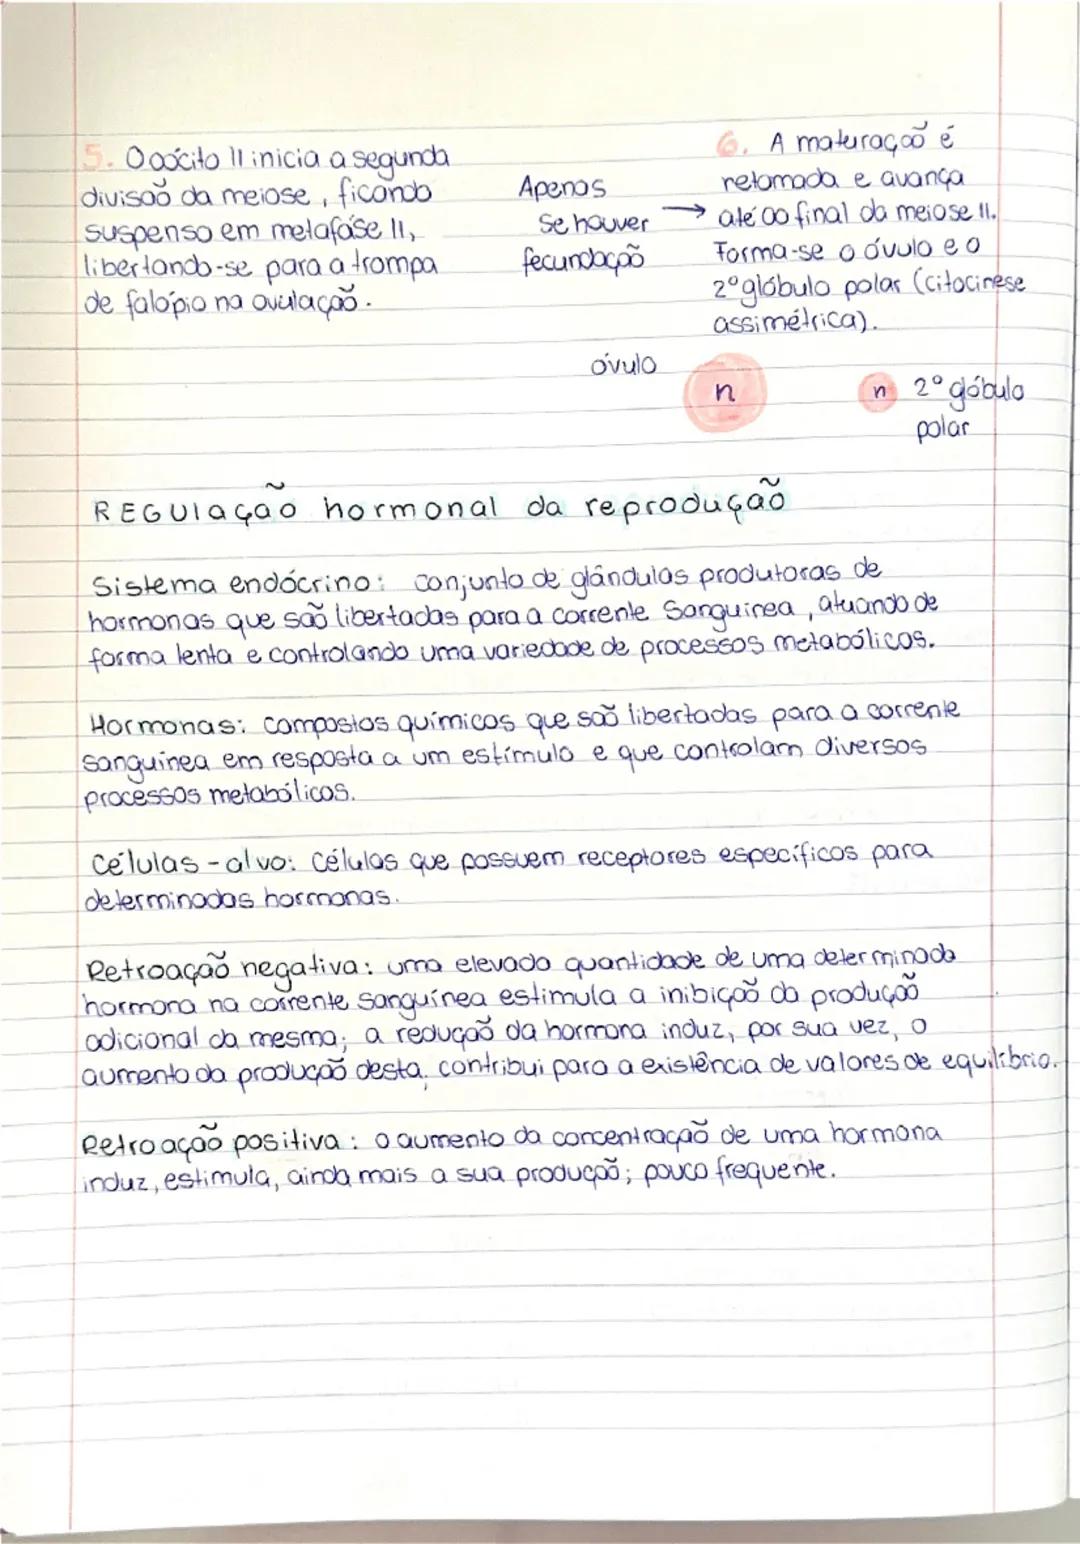 5. O oócito II inicia a segunda
divisão da meiose, ficando
suspenso em metafáse II,
libertando-se para a trompa
de falópio na ovulação.
Apenas
se houver →
fecundação
6. A maturação é
retomada e avança
até ao final da meiose II.
Forma-se o óvulo e o
2º glóbulo polar (citocinese
assimétrica).
óvulo
n
n 2º glóbulo
polar
REGUlação hormonal da reprodução
Sistema endócrino: conjunto de glândulas produtoras de
hormonas que são libertadas para a corrente Sanguínea, atuando de
forma lenta e controlando uma variedade de processos metabólicos.
Hormonas: compostos químicos que são libertadas para a corrente
sanguínea em resposta a um estímulo e que controlam diversos
processos metabólicos.
Células-alvo: Células que possuem receptores específicos para
determinadas hormonas.
Retroação negativa: uma elevada quantidade de uma determinada
hormona na corrente sanguínea estimula a inibição da produção
adicional da mesma; a redução da hormona induz, por sua vez, o
aumento da produção desta. contribui para a existência de valores de equilíbrio.
Retroação positiva: o aumento da concentração de uma hormona
induz, estimula, ainda mais a sua produção; pouco frequente.